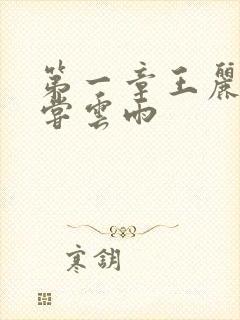 第一章王麗
嘗雲雨
寒鈅